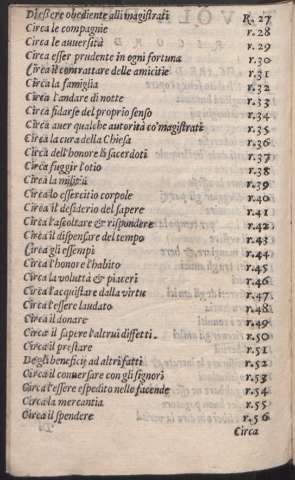 Di essere obediente alli magistrati R. 27
Circa le compagnie r. 28
Circa le auuersità r. 29
Circa esser prudente in ogni fortuna r. 30
Circa il contrattare delle amicitie r. 31
Circa la famiglia r. 32
Circa l'andare di notte r. 33
Circa fidarse del proprio senso r. 34
Circa auer qualche autorità co' magistrati r. 35
Circa la cura della Chiesa r. 36
Circa dell'honore li sacerdoti r. 37
Circa fuggir l'otio r. 38
Circa la militia r. 39
Circa lo essercitio corpole r. 40
Circa il desiderio del sapere r. 41
Circa l'ascoltare & rispondere r. 42
Circa il dispensare del tempo r. 43
Circa gli essempi r. 44
Circa l'honore l'habito r. 45
Circa la voluttà & piaceri r. 46
Circa l'acquistare dalla virtu r. 47
Circa l'essere laudato r. 48
Circa il donare r. 49
Circa il sapere l'altrui diffetti. r. 50
Circa il prestare r. 51
Degli beneficij ad altri fatti r. 52
Circa il conuersare con gli signori r. 53
Circa l'essere espedito nelle facende r. 54
Circa la mercantia r. 55
Circa il spendere r. 56
Circa